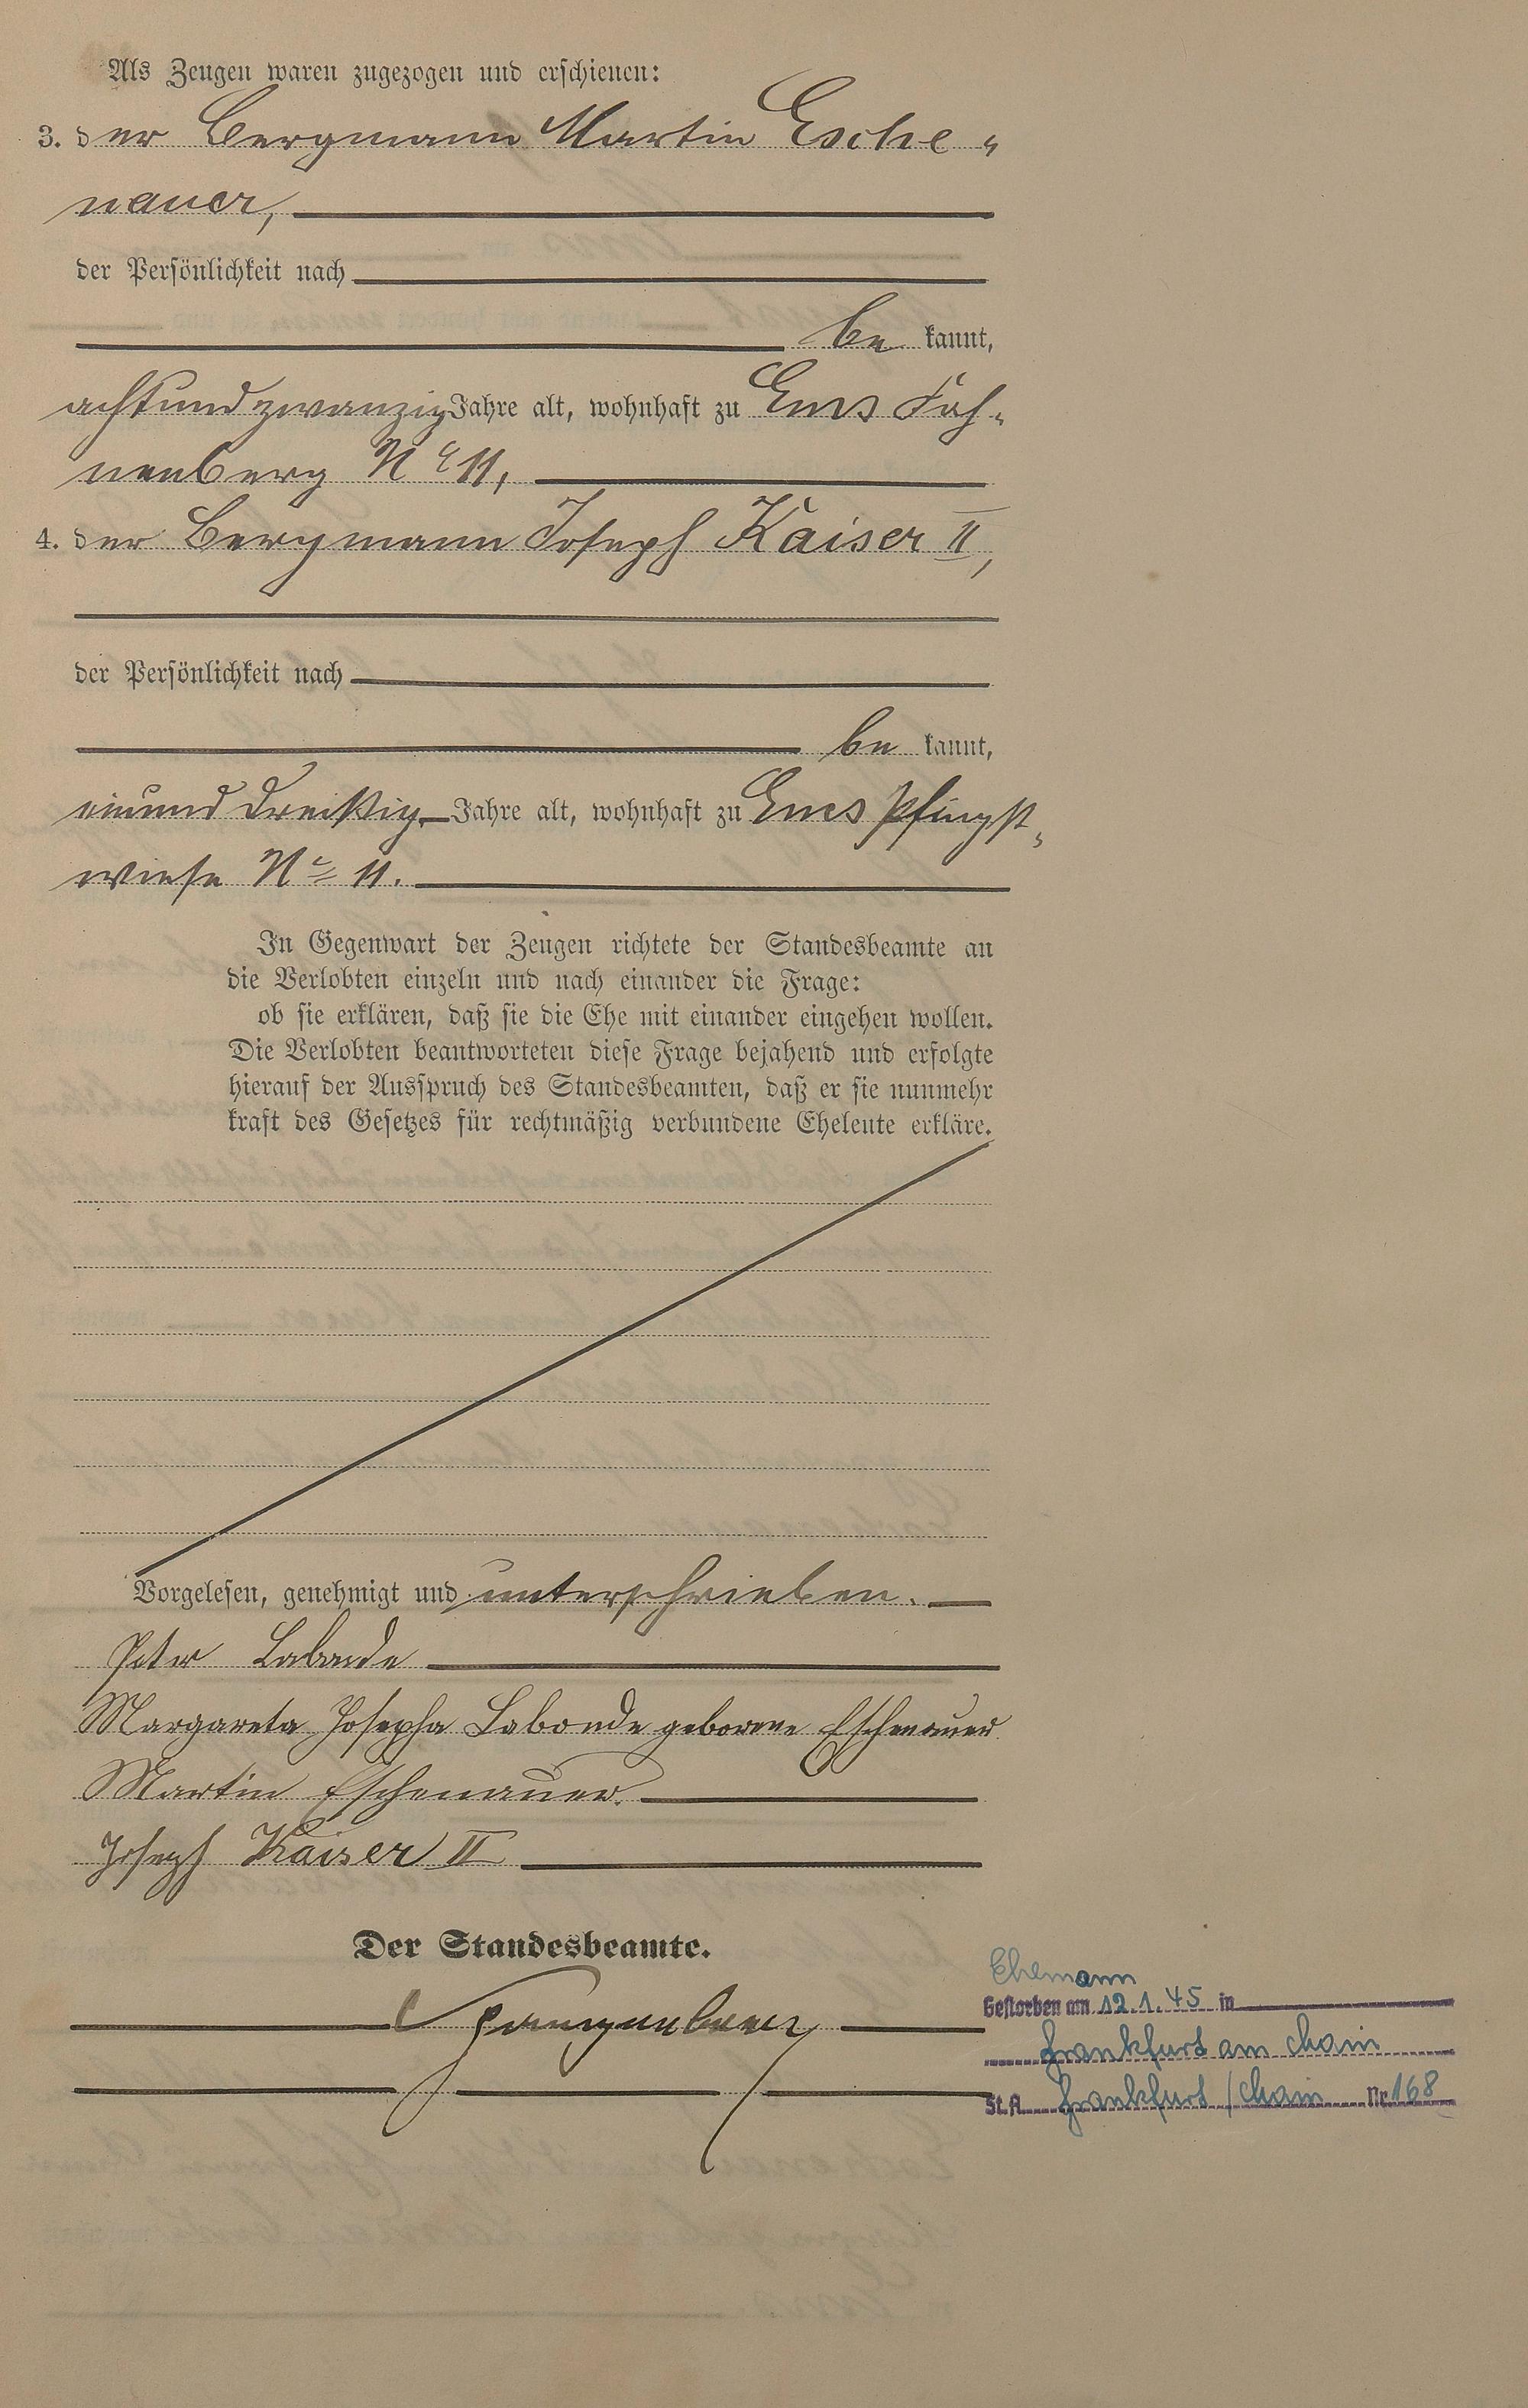 Als Zeugen waren zugezogen und erschienen:
3. der Bergmann Martin Esche-
nauer,
der Persönlichkeit nach
be kannt,
achtundzwanzig Jahre alt, wohnhaft zu Ems Fah-
nenberg No 11,
4. der Bergmann Joseph Kaiser II,
der Persönlichkeit nach
be kannt,
einunddreißig Jahre alt, wohnhaft zu Ems Pfingst-
wiese No 11.
In Gegenwart der Zeugen richtete der Standesbeamte an
die Verlobten einzeln und nach einander die Frage:
ob sie erklären, daß sie die Ehe mit einander eingehen wollen.
Die Verlobten beantworteten diese Frage bejahend und erfolgte
hierauf der Ausspruch des Standesbeamten, daß er sie nunmehr
kraft des Gesetzes für rechtmäßig verbundene Eheleute erkläre.
Vorgelesen, genehmigt und unterschrieben.
Peter Labonde
Margareta Josepha Labonde geborene Eschenauer
Martin Eschenauer.
Joseph Kaiser II
Der Standesbeamte.
Ehemann
Gestorben am 12.1.45 in
Frankfurt am Main
St.A. Frankfurt / Main Nr. 168